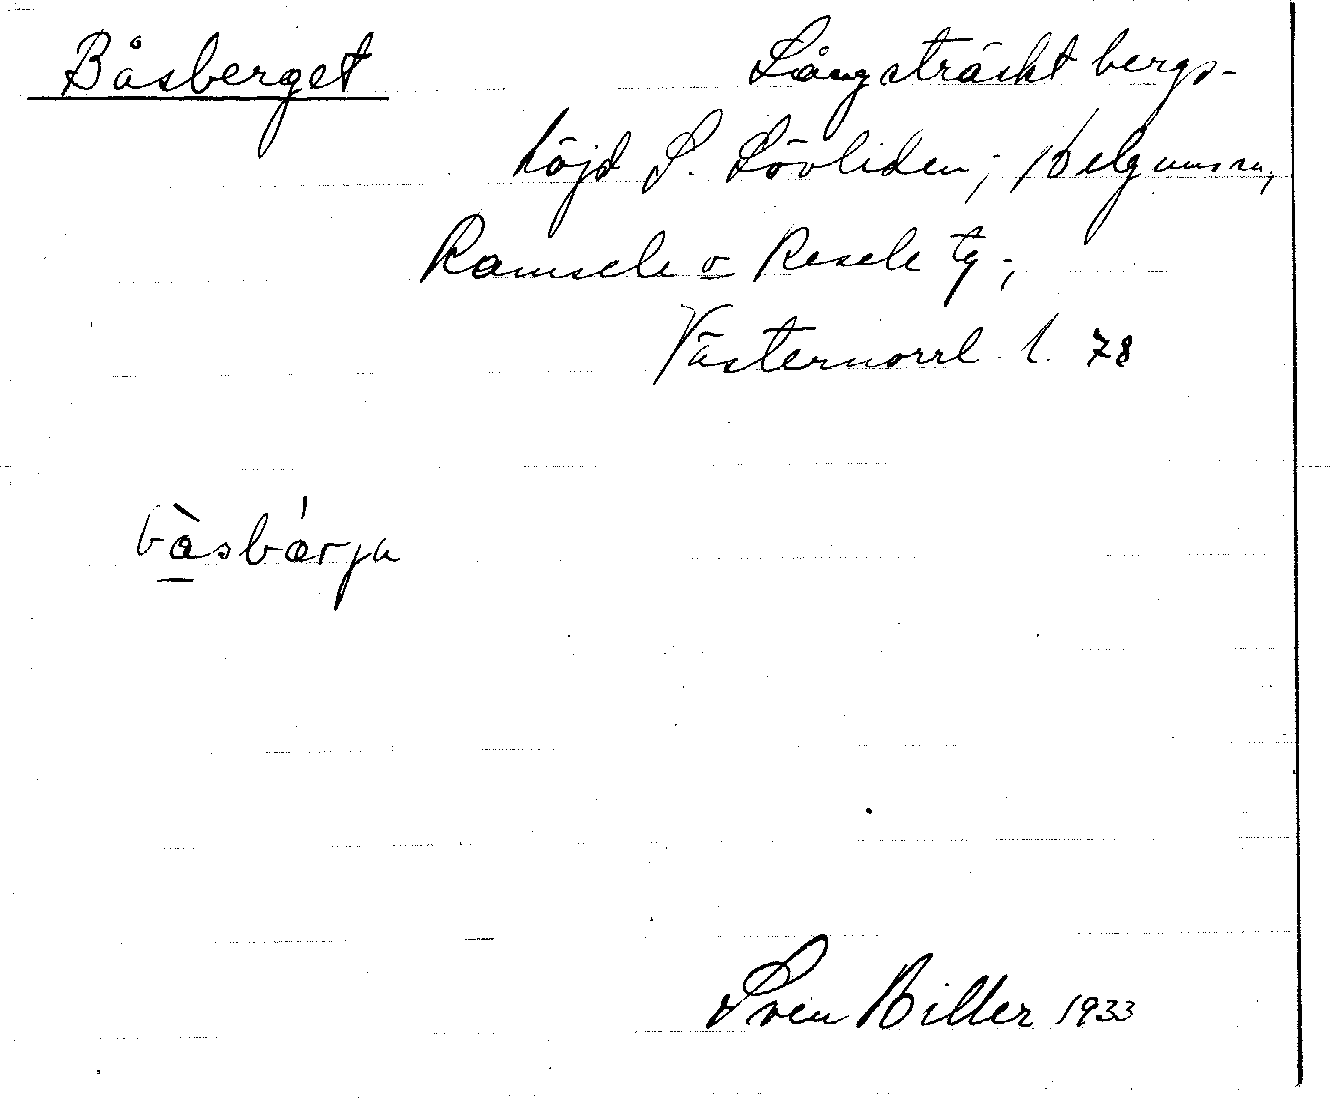 Båsberget
Långsträckt bergs-
höjd S. Lövliden; Helgumsn,
Ramsele o Resele tg;
Västernorrl. l. 78
bàsbárja
Sven Biller 1933